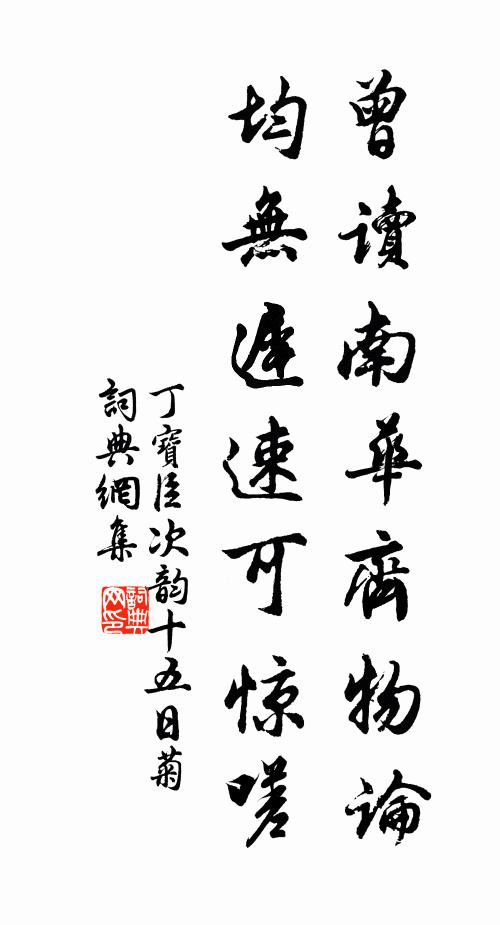 曾讀南華齊物論
均無遲速可惊嗟
丁寶臣次韵十五日菊
詞典網集
詞典网印